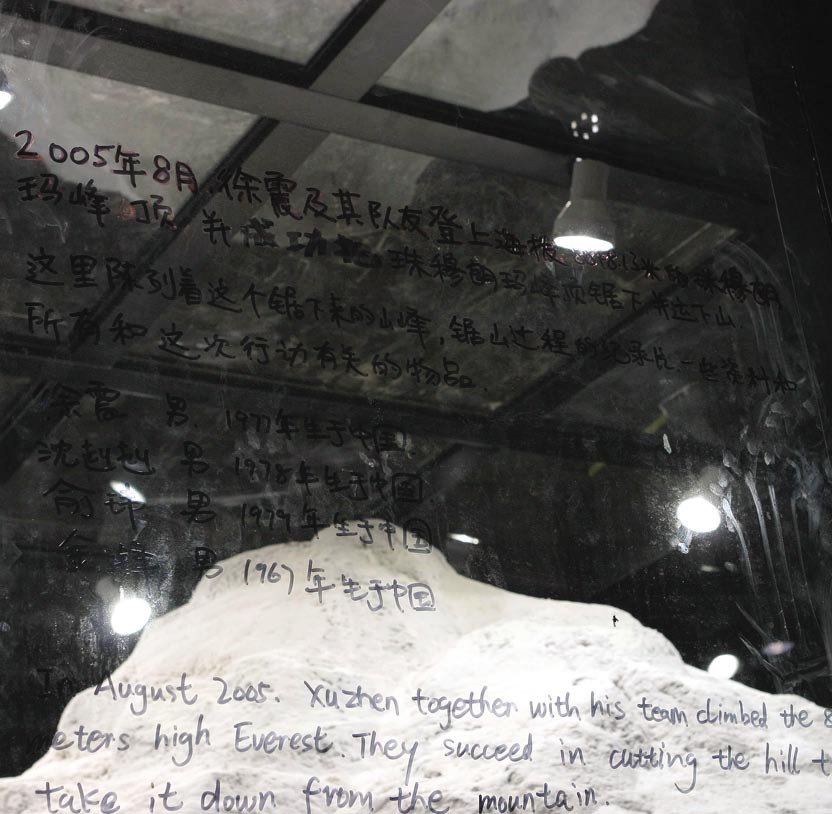 2005年8月,徐震及其队友登上海拔 米的珠穆朗
玛峰顶,并成功把珠穆朗玛峰顶锯下来运下山.
这里陈列着这个锯下来的山峰,锯山过程的纪录片,一些资料和
所有和这次行动有关的物品.
徐震 男. 1977年生于中国.
沈 男 1978年生于中国
男 1979年生于中国
男 1967年生于中国
In August 2005. Xuzhen together with his team climbed the 8
meters high Everest. They succeed in cutting the hill t
take it down from the mountain.